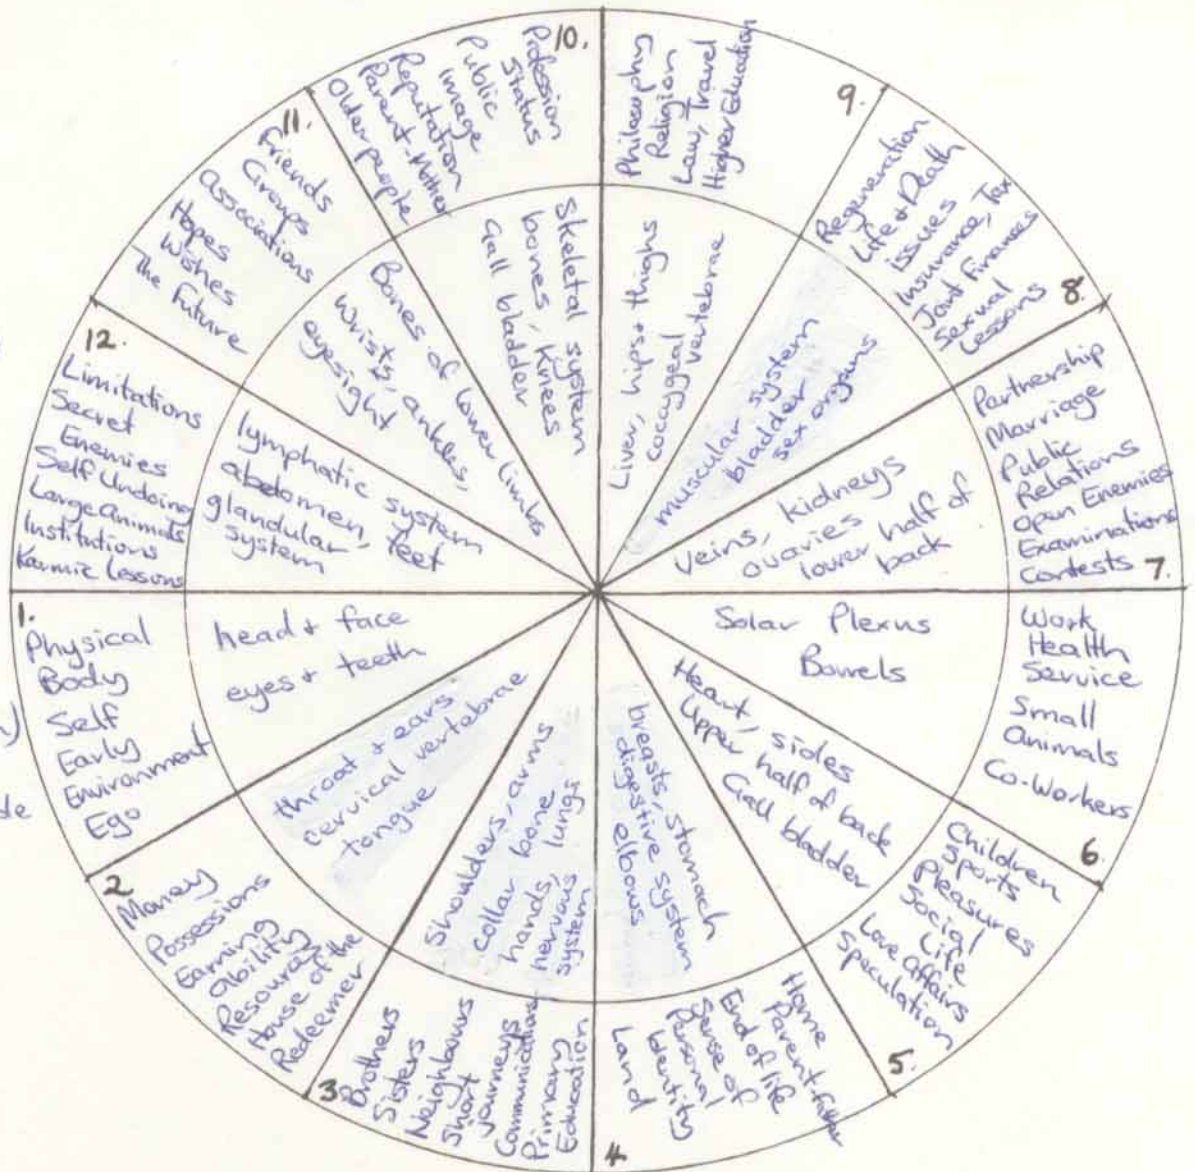 1.
Physical
Body
Self
Early
Environment
Ego
head + face
eyes + teeth
2
Money
Possessions
Earning
ability
Resources
House of the
Redeemer
throat + ears
cervical vertebrae
tongue
3
Brothers
Sisters
Neighbours
Short
journeys
Communications
Primary
Education
Shoulders, arms
collar bone
hands, lungs
nervous
system
4.
Home
Parent-Father
End of life
Sense of
Personal
Identity
Land
breasts, stomach
digestive system
elbows
5.
Children
Sports
Pleasures
Social
Life
Love Affairs
Speculation
Heart, sides
Upper half of back
Gall bladder
6.
Work
Health
Service
Small
animals
Co-Workers
Solar Plexus
Bowels
7.
Partnership
Marriage
Public
Relations
Open Enemies
Examinations
Contests
Veins, kidneys
ovaries
lower half of
back
8.
Regeneration
Life + Death
issues
Insurance, Tax
Joint Finances
Sexual
Lessons
muscular system
bladder
sex organs
9.
Philosophy
Religion
Law, Travel
Higher Education
Liver, hips + thighs
coccygeal
vertebrae
10.
Profession
Status
Public
image
Reputation
Parent-Mother
Older people
Skeletal system
bones, knees
Gall bladder
11.
Friends
Groups
associations
Hopes
Wishes
The Future
Bones of lower limbs
Wrists, ankles,
eyesight
12.
Limitations
Secret
Enemies
Self Undoing
Large Animals
Institutions
Karmic Lessons
lymphatic system
abdomen, feet
glandular
system